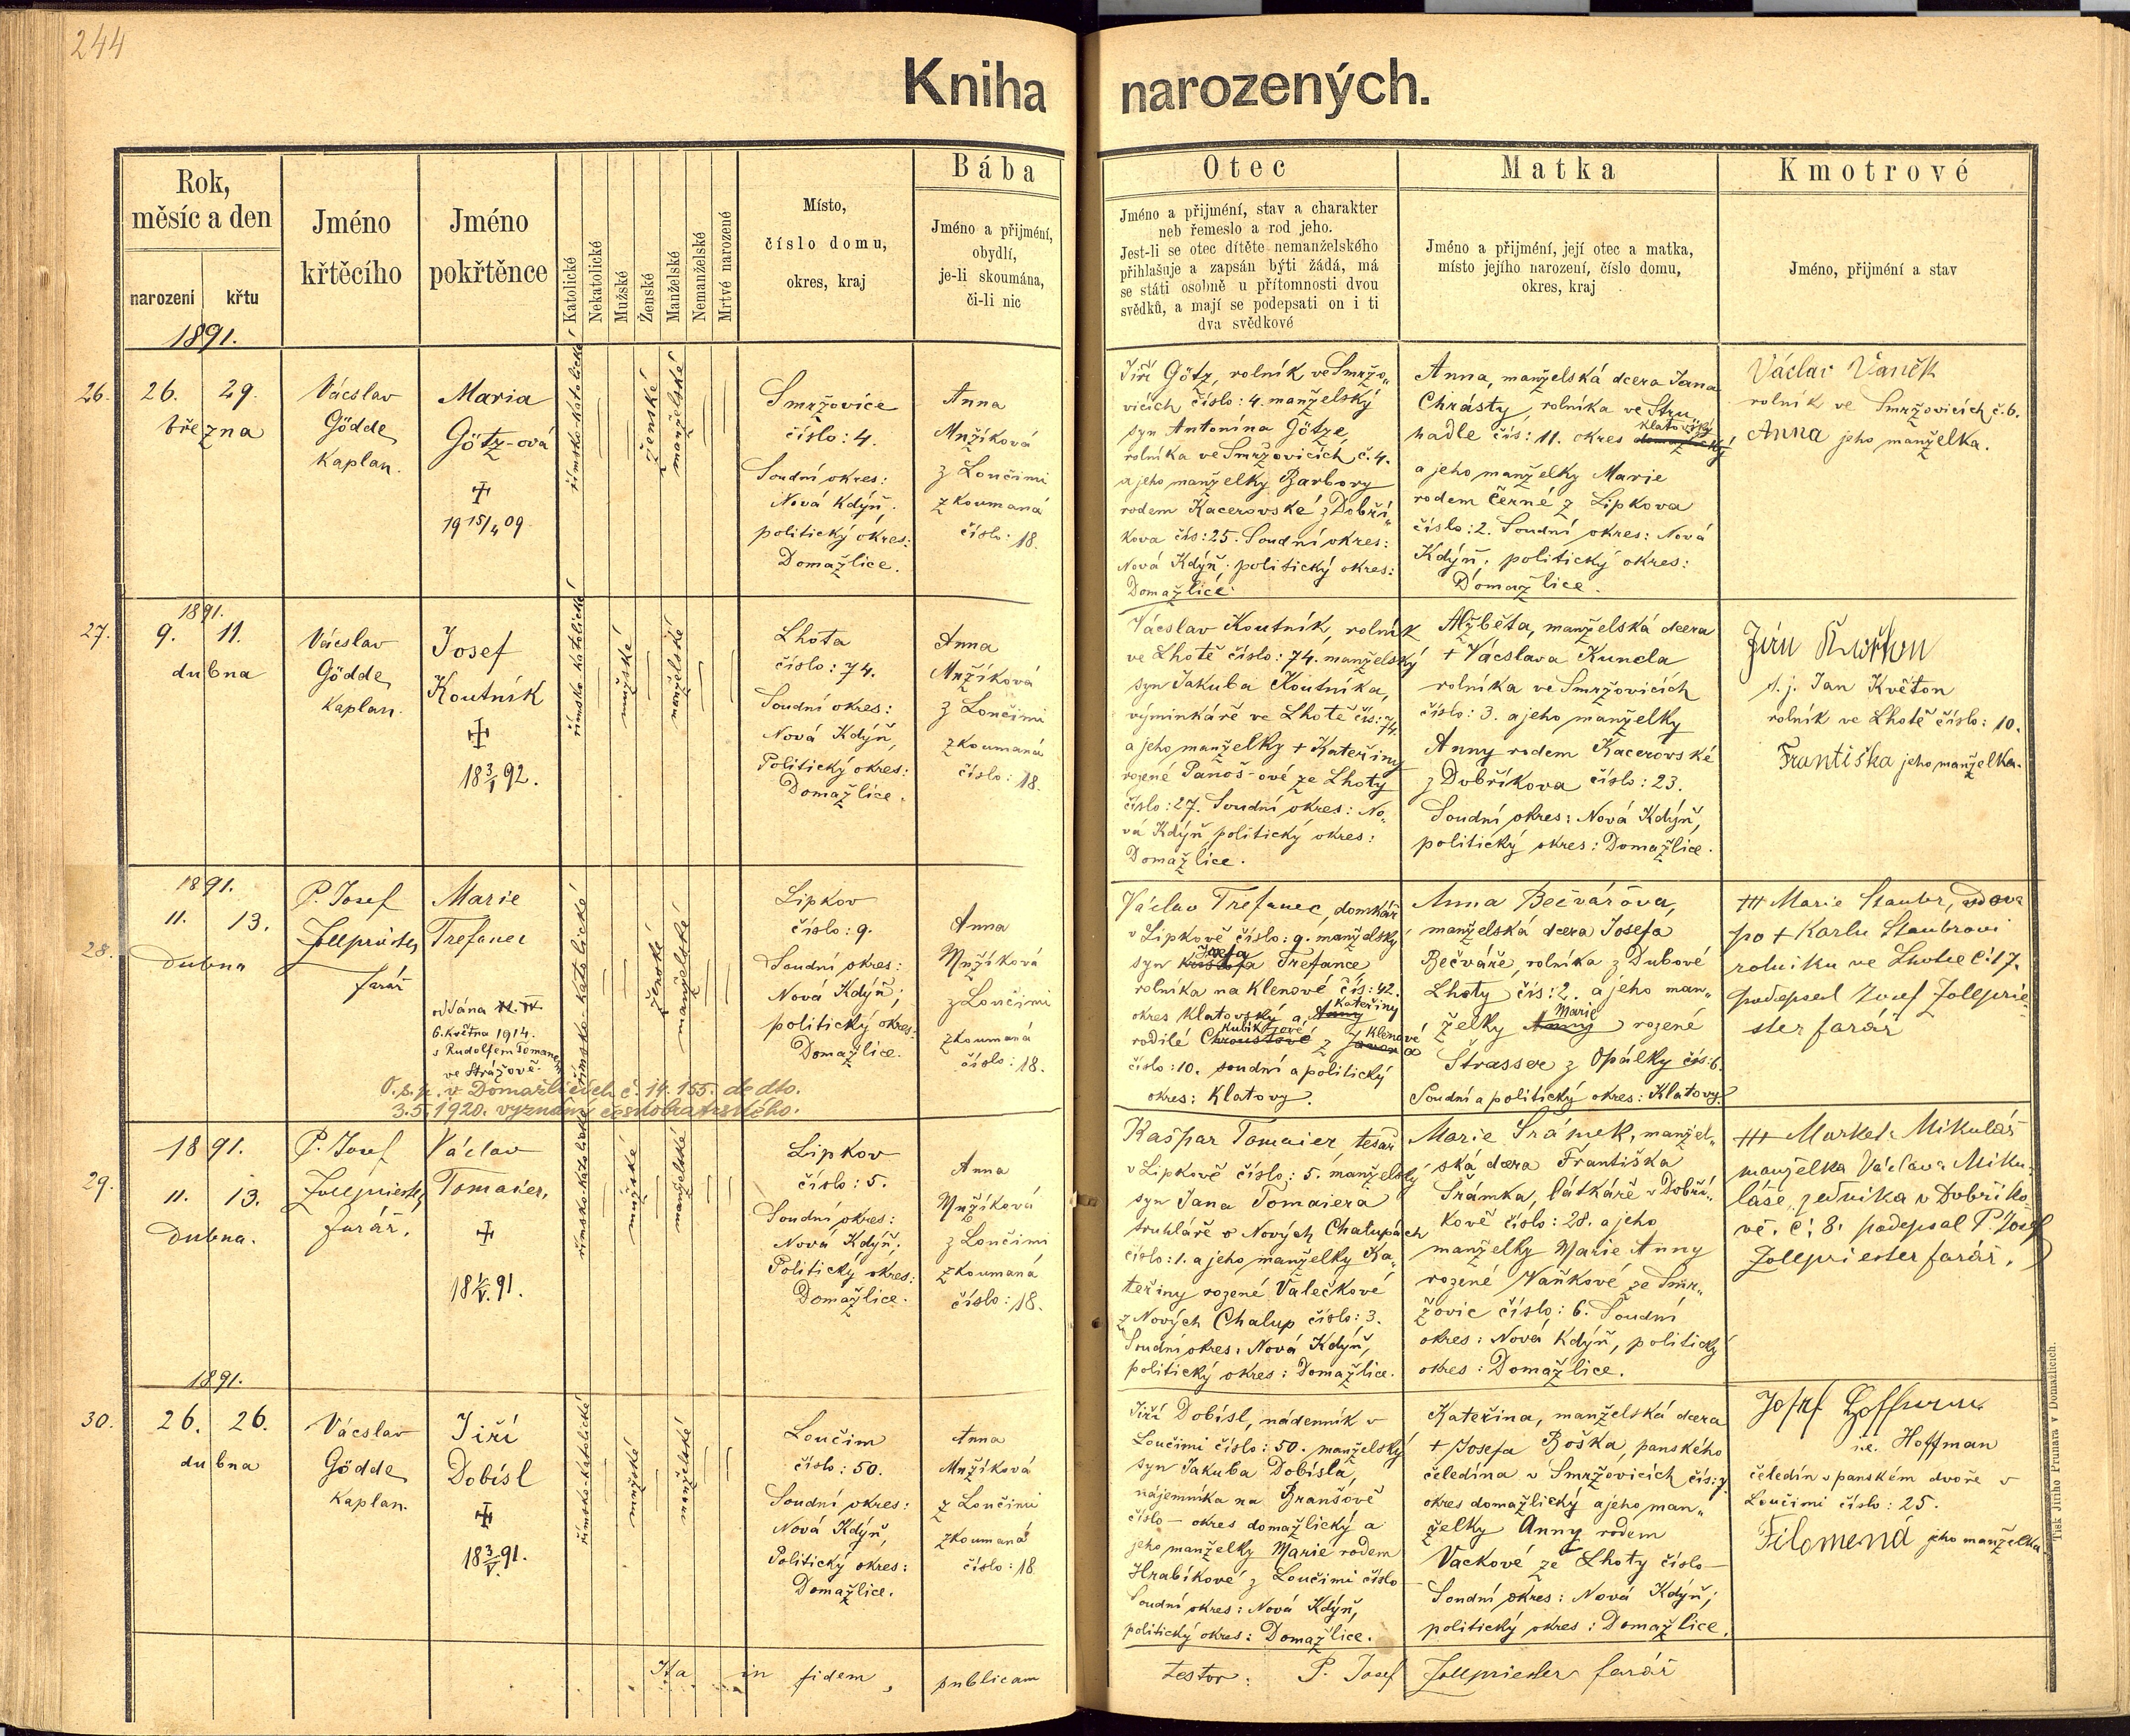 244
Kniha narozených.
Rok,
měsíc a den
narození křtu
Jméno
křtěcího
Jméno
pokřtěnce
Katolické
Nekatolické
Mužské
Ženské
Manželské
Nemanželské
Mrtvé narozené
Místo,
číslo domu,
okres, kraj
Bába
Jméno a přijmění,
obydlí,
je-li skoumána,
či-li nic
Otec
Jméno a přijmění, stav a charakter
neb řemeslo a rod jeho.
Jest-li se otec dítěte nemanželského
přihlašuje a zapsán býti žádá, má
se státi osobně u přítomnosti dvou
svědků, a mají se podepsati on i ti
dva svědkové
Matka
Jméno a přijmění, její otec a matka,
místo jejího narození, číslo domu,
okres, kraj
Kmotrové
Jméno, přijmění a stav
1891.
26.
26. 29.
března
Vácslav
Gödde
Kaplan.
Maria
Götz-ová
19 15/4 09
římsko-katolické
ženské
manželské
Smržovice
číslo: 4.
Soudní okres:
Nová Kdýň.
politický okres:
Domažlice.
Anna
Mžíková
z Loučimi
zkoumaná
číslo: 18.
Jiří Götz, rolník ve Smržo„
vicích číslo: 4. manželský
syn Antonína Götze,
rolníka ve Smržovicích č. 4.
a jeho manželky Barbory
rodem Kacerovské z Dobří„
kova čís: 25. Soudní okres:
Nová Kdýň; politický okres:
Domažlice
Anna, manželská dcera Jana
Chrásty, rolníka ve Stru„
klatovský
hadle čís: 11. okres domažlický
a jeho manželky Marie
rodem Černé z Lipkova
číslo: 2. Soudní okres: Nová
Kdýň; politický okres:
Domažlice.
Václav Vaněk
rolník ve Smržovicích č. 6.
Anna jeho manželka.
1891.
27.
9. 11.
dubna
Vácslav
Gödde
Kaplan.
Josef
Koutník
18 3/1 92.
římsko-katolické
mužské
manželské
Lhota
číslo: 74.
Soudní okres:
Nová Kdýň,
Politický okres:
Domažlice.
Anna
Mžíková
z Loučimi
zkoumaná
číslo: 18.
Vácslav Koutník, rolník
ve Lhotě číslo: 74. manželský
syn Jakuba Koutníka,
výminkáře ve Lhotě čís: 74.
a jeho manželky + Kateřiny
rozené Panoš-ové ze Lhoty
číslo: 27. Soudní okres: No„
vá Kdýň politický okres:
Domažlice.
Alžběta, manželská dcera
+ Vácslava Kuncla
rolníka ve Smržovicích
číslo: 3. a jeho manželky
Anny rodem Kacerovské
z Dobříkova číslo: 23.
Soudní okres: Nová Kdýň,
politický okres: Domažlice.
t. j. Jan Květon
rolník ve Lhotě číslo: 10.
Františka jeho manželka.
1891.
28.
11. 13.
dubna
P. Josef
Zollpriester,
farář
Marie
Trefanec
oddána
6. května 1914.
s Rudolfem Tomanem
ve Strážově.
O. s. p. v Domažlicích č. 14.155. de dto.
3.5.1920. vyznání českobratrského.
římsko-katolické
ženské
manželské
Lipkov
číslo: 9.
Soudní okres:
Nová Kdýň;
politický okres:
Domažlice.
Anna
Mžíková
z Loučimi
zkoumaná
číslo: 18.
Václav Trefanec, domkář
v Lipkově číslo: 9. manželský
Josefa
syn Trefance
rolníka na Klenové čís: 42.
Kateřiny
okres klatovský a Anny
Klenové
rodilé Chroustové z
číslo: 10. soudní a politický
okres: Klatovy.
Anna Bečvářova,
manželská dcera Josefa
Bečváře, rolníka z Dubové
Lhoty čís: 2. a jeho man„
Marie
želky Anny rozené
Strasser z Opálky čís: 6.
Soudní a politický okres: Klatovy.
+++ Marie Staubr, vdova
po + Karlu Staubrovi
rolníku ve Lhotě č: 17.
podepsal Josef Zollprie
ster farář
1891.
29.
11. 13.
dubna.
P. Josef
Zollpriester,
farář.
Václav
Tomaier,
18 1/V. 91.
římsko-katolické
mužské
manželské
Lipkov
číslo: 5.
Soudní okres:
Nová Kdýň;
Politický okres:
Domažlice.
Anna
Mžíková
z Loučimi
zkoumaná
číslo: 18.
Kašpar Tomaier tesař
v Lipkově číslo: 5. manželský
syn Jana Tomaiera
truhláře v Nových Chalupách
číslo: 1. a jeho manželky Ka„
teřiny rozené Valečkové
z Nových Chalup číslo: 3.
Soudní okres: Nová Kdýň,
politický okres: Domažlice.
Marie Šrámek, manžel„
ská dcera Františka
Šrámka, látkáře v Dobří„
kově číslo: 28. a jeho
manželky Marie Anny
rozené Vaňkové ze Smr„
žovic číslo: 6. Soudní
okres: Nová Kdýň, politický
okres: Domažlice.
+++ Marketa Mikuláš
manželka Václava Miku„
láše, v Dobříko
vě. č: 8. podepsal P. Josef
Zollpriester farář.
1891.
30.
26. 26.
dubna
Vácslav
Gödde
Kaplan.
Jiří
Dobísl
18 3/V. 91.
římsko-katolické
mužské
manželské
Loučim
číslo: 50.
Soudní okres:
Nová Kdýň,
Politický okres:
Domažlice.
Anna
Mžíková
z Loučimi
zkoumaná
číslo: 18
Jiří Dobísl, nádenník v
Loučimi číslo: 50. manželský
syn Jakuba Dobísla,
nájemníka na Branšově
číslo – okres domažlický a
jeho manželky Marie rodem
Hrabíkové z Loučimi číslo –
Soudní okres: Nová Kdýň,
politický okres: Domažlice.
Kateřina, manželská dcera
+ Josefa Boška, panského
čeledína v Smržovicích čís: 7.
okres domažlický a jeho man„
želky Anny rodem
Vackové ze Lhoty číslo –
Soudní okres: Nová Kdýň;
politický okres: Domažlice.
Josef Hoffmann.
Hoffman
čeledín v panském dvoře v
Loučimi číslo: 25.
Filomena jeho manželka.
Ita in fidem, publicam
testor: P. Josef Zollpriester farář
Tisk Jiřího Prunara v Domažlicích.